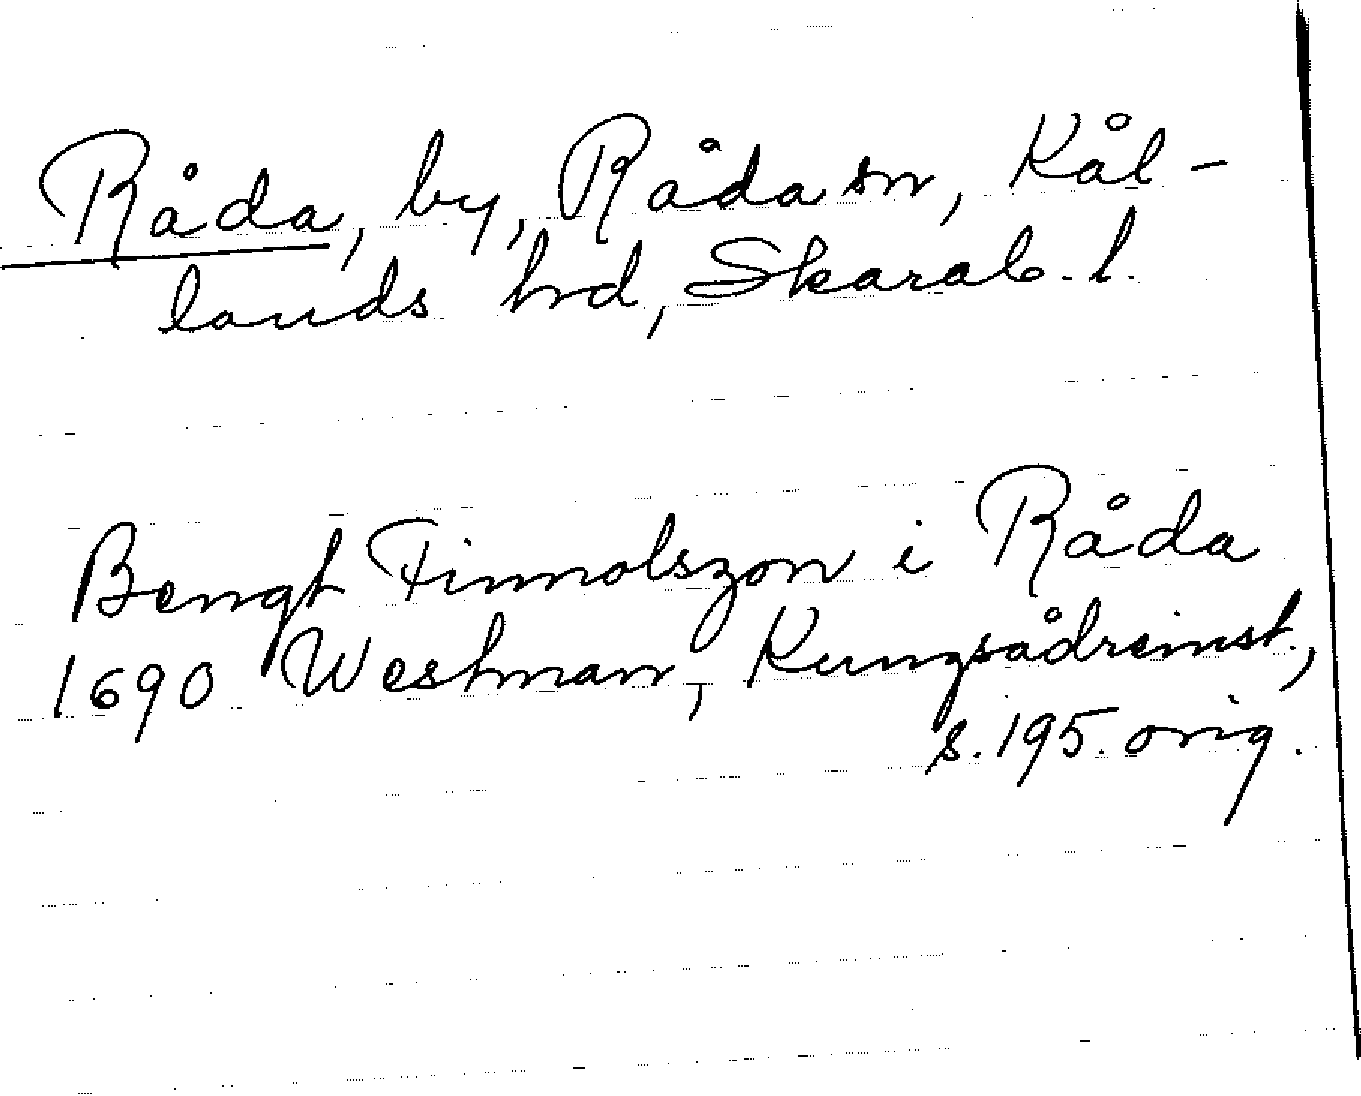 Råda, by, Råda sn, Kål-
lands hd, Skarab. l.
Bengt Finnolszon i Råda
1690 Westman, Kungsådreinst.,
s. 195. orig.